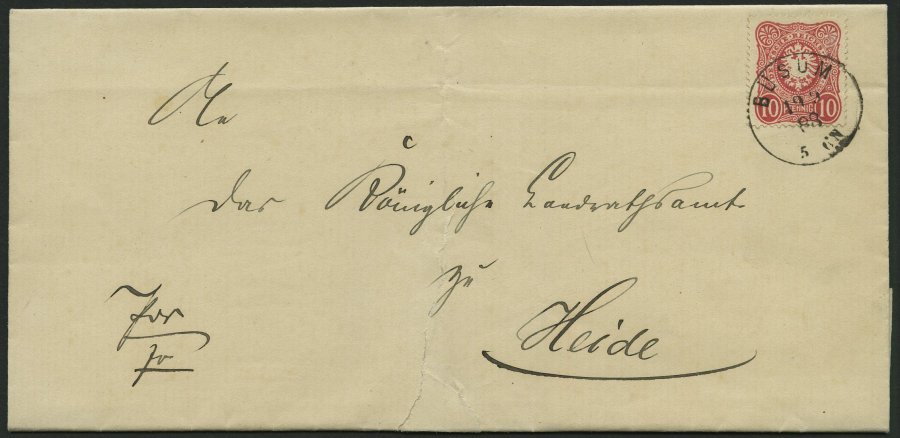 BÜSUM
88
5
10 10
An
das Königliche Landrathsamt
zu
Heide